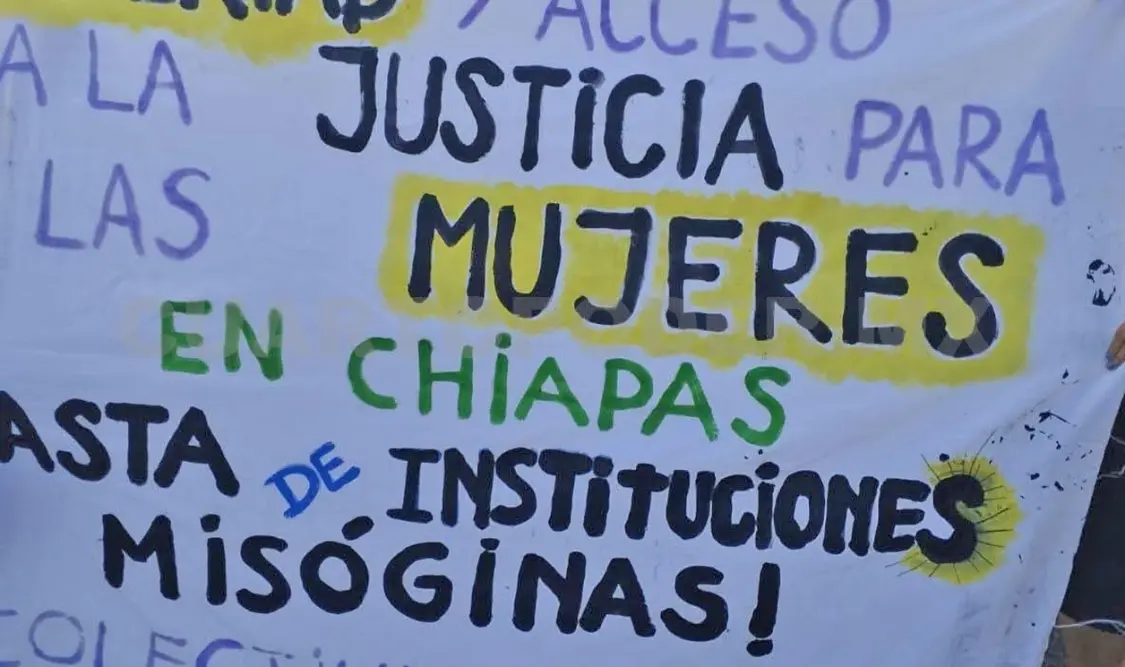 Y ACCESO
A LA JUSTiCIA PARA
LAS MUJERES
EN CHiAPAS
ASTA DE INSTiTUCiONES
MiSÓGiNAS!